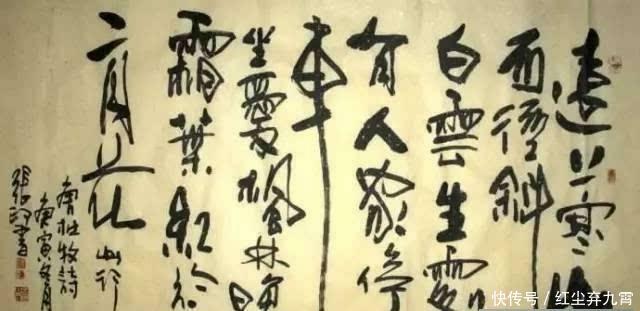 遠上寒山
石徑斜
白雲生處
有人家停
車
坐愛楓林晚
霜葉紅於
二月花 山行
唐杜牧詩
庚寅冬月
張 書
快传号／红尘弃九霄